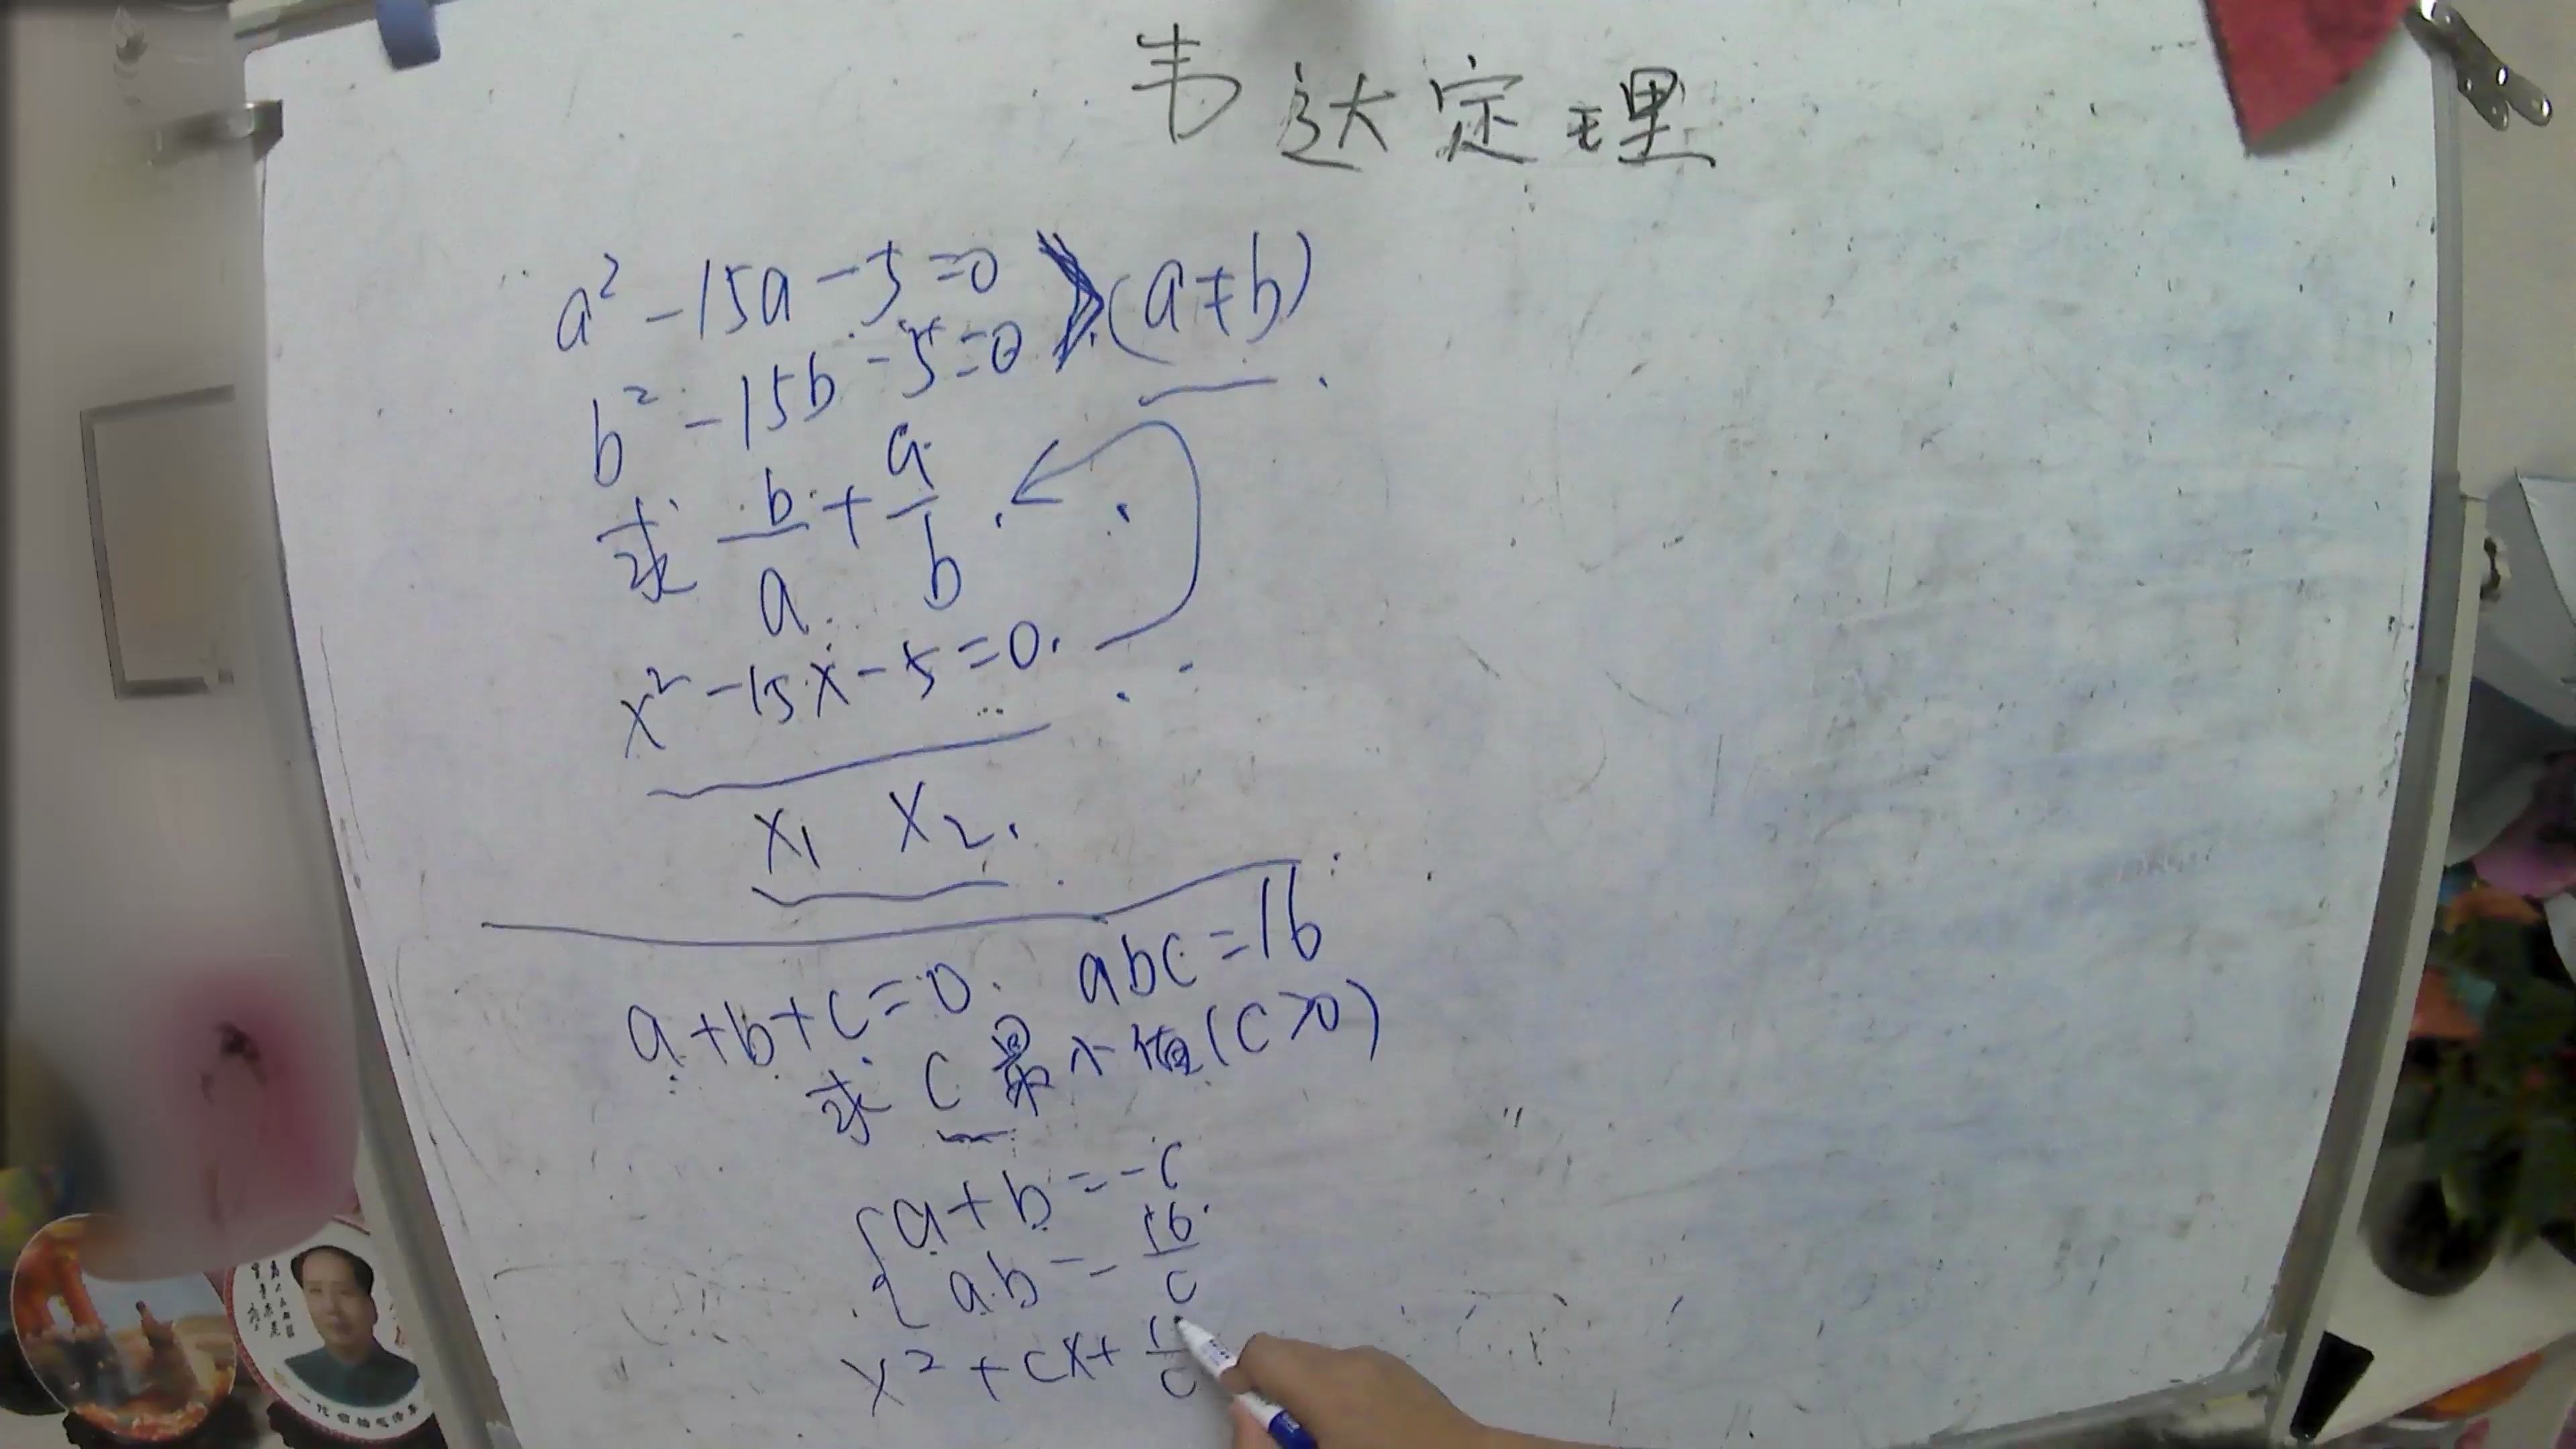 韦达定理
a² - 15a - 5 = 0
(a ≠ b)
b² - 15b - 5 = 0
求 b/a + a/b
x² - 15x - 5 = 0.
x₁ x₂.
a + b + c = 0. abc = 16
求 c 最小值 (c > 0)
a + b = -c
ab = 16/c
x² + cx +